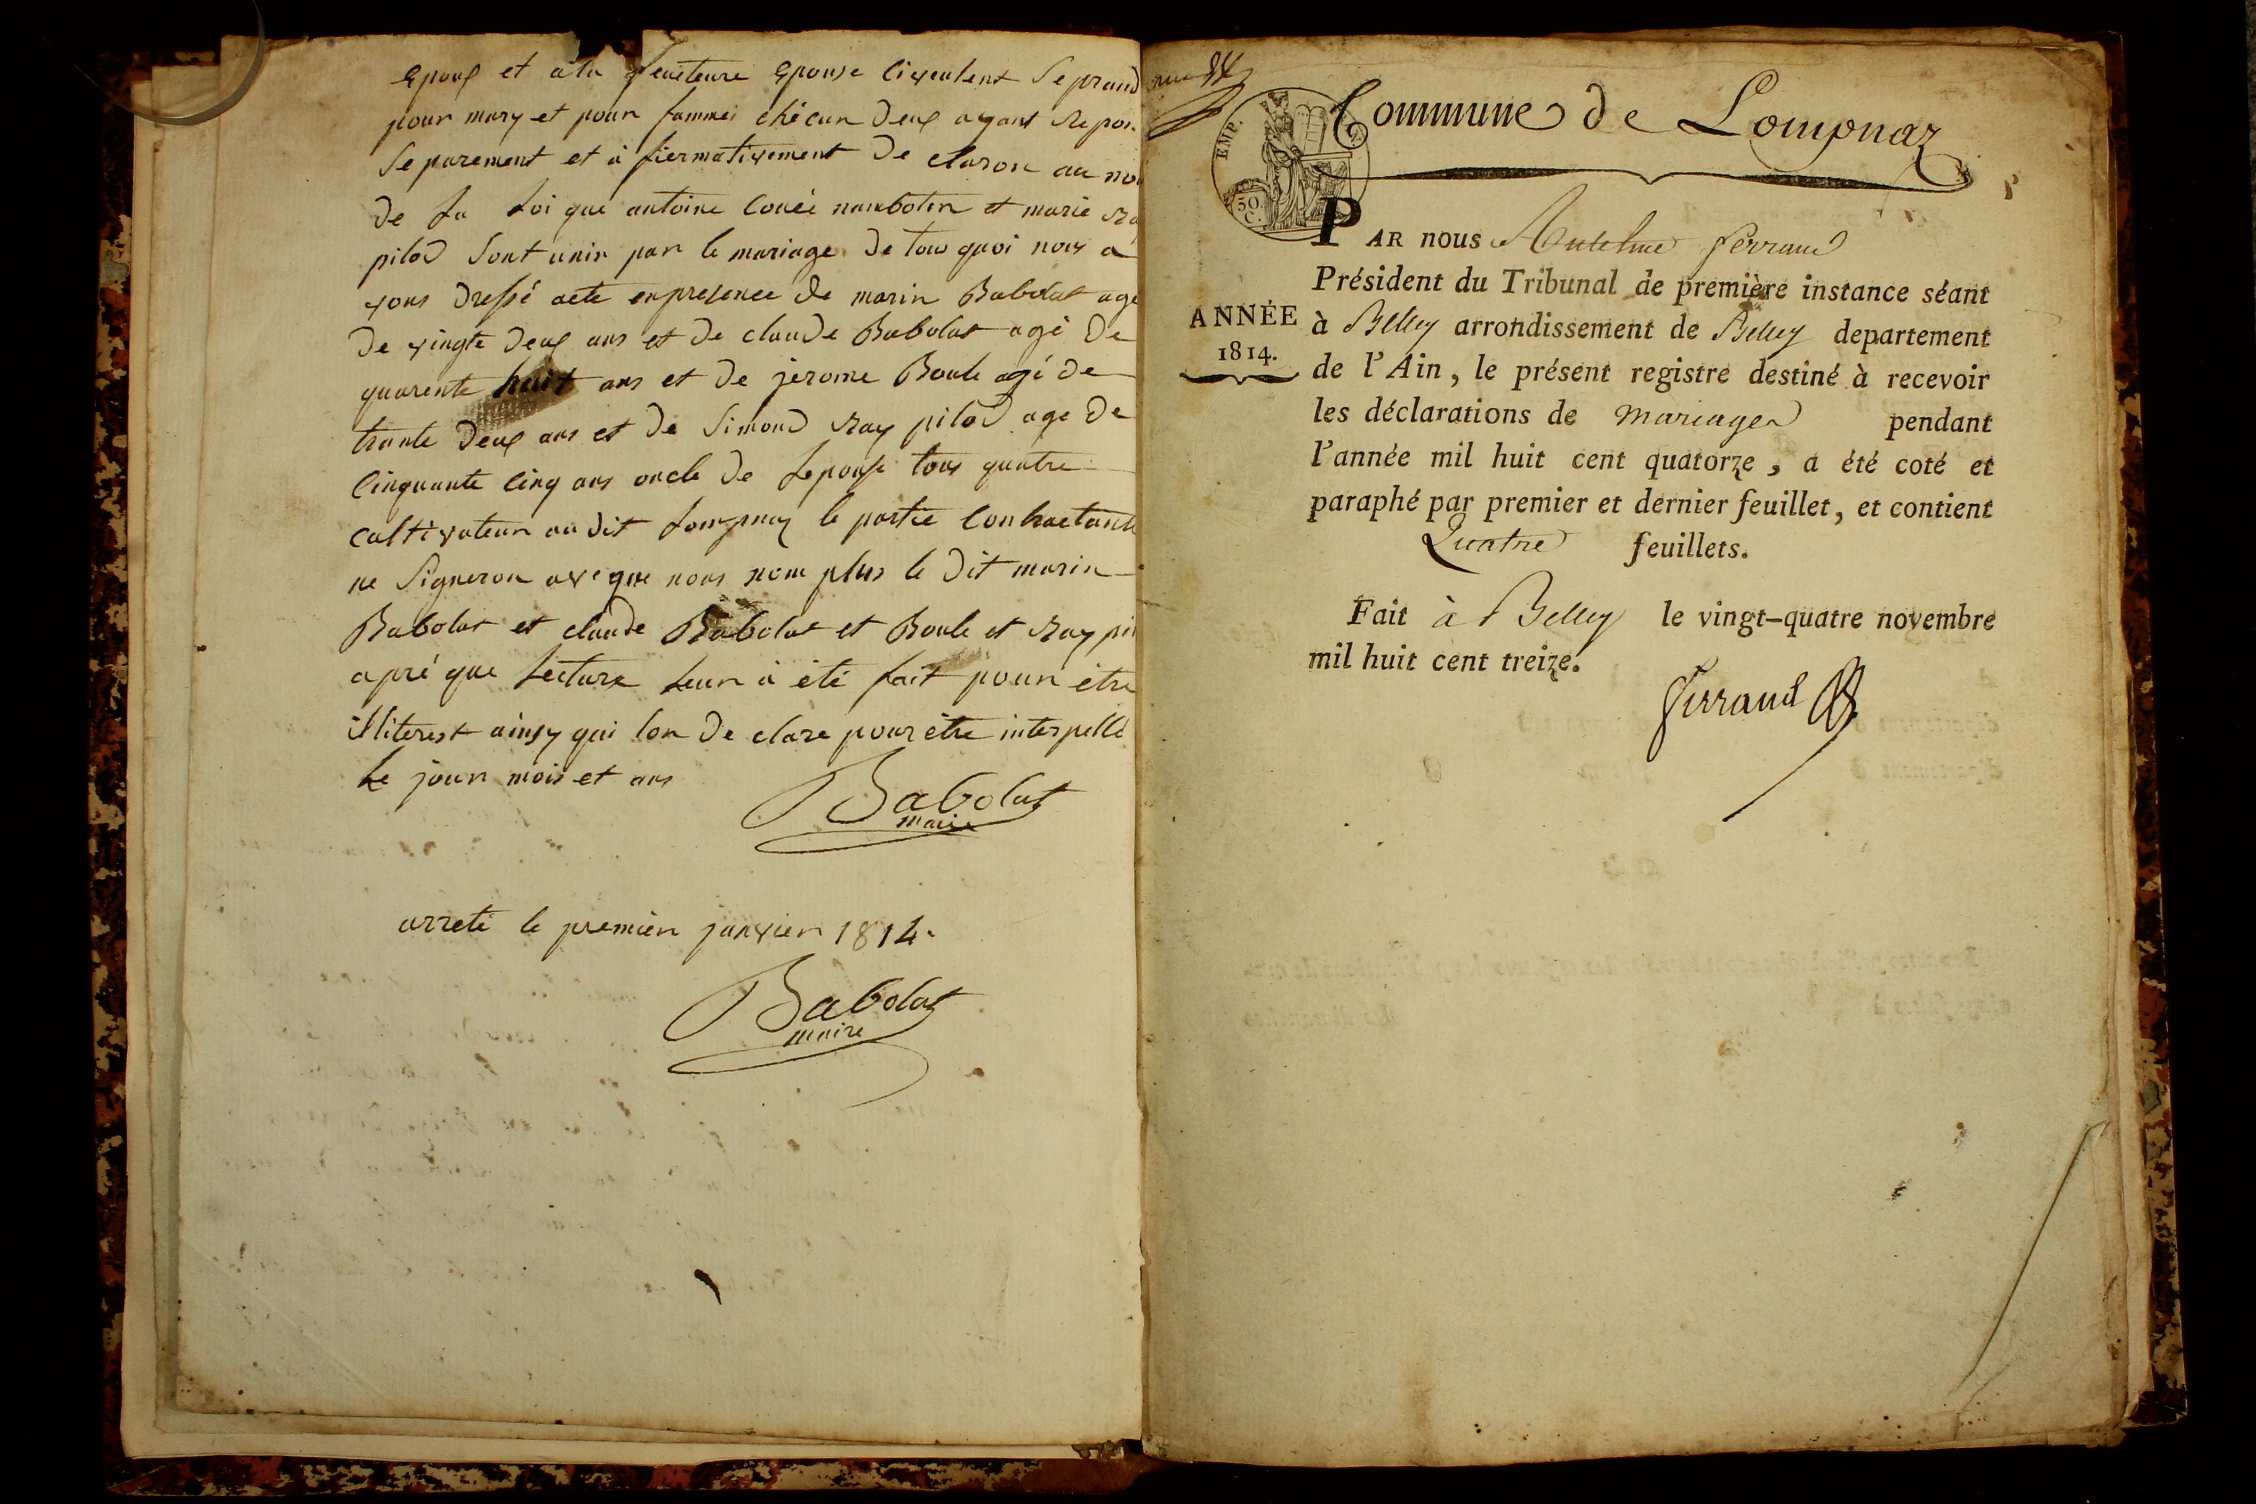 epoux et a la feuteure epouse civeulent se prand
pour mary et pour famme chécun deux ayant repon
separement et à fiermativement de claron au nom
de la loi que antoine nambotin et marie
pilod sont unin par le mariage de tou quoi nous a
vons dressé acte en presence de marin Babolat age
de vingte deux ans et de claude Babolat agé de
quarente huit ans et de jerome Boule agé de
trante deux ans et de Simond Ray pilod age de
cinquante cinq ans oncle de lepouse tous quatre
cultivateur au dit Lompnaz le partie contractante
ne signeron aveque nous nom plus le dit marin
Babolat et claude Babolat et Boule et Ray pil
apré que lecture leur à été fait pour être
illiterest ainsy qui lon de clare pour être interpellé
Le jour mois et ans
Babolat
maire
arreté le premier janvier 1814.
Babolat
maire
Commune de Lompnaz
EMP.
50.
C.
PAR nous Antelme ferrand
Président du Tribunal de première instance séant
ANNÉE
1814.
à Belley arrondissement de Belley departement
de l'Ain, le présent registre destiné à recevoir
les déclarations de mariages pendant
l'année mil huit cent quatorze, a été coté et
paraphé par premier et dernier feuillet, et contient
Quatre feuillets.
Fait à Belley le vingt-quatre novembre
mil huit cent treize.
ferrand